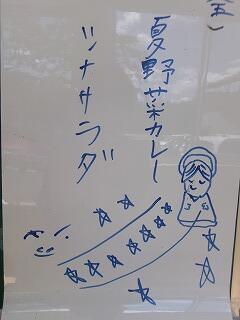 (金)
夏野菜カレー
ツナサラダ